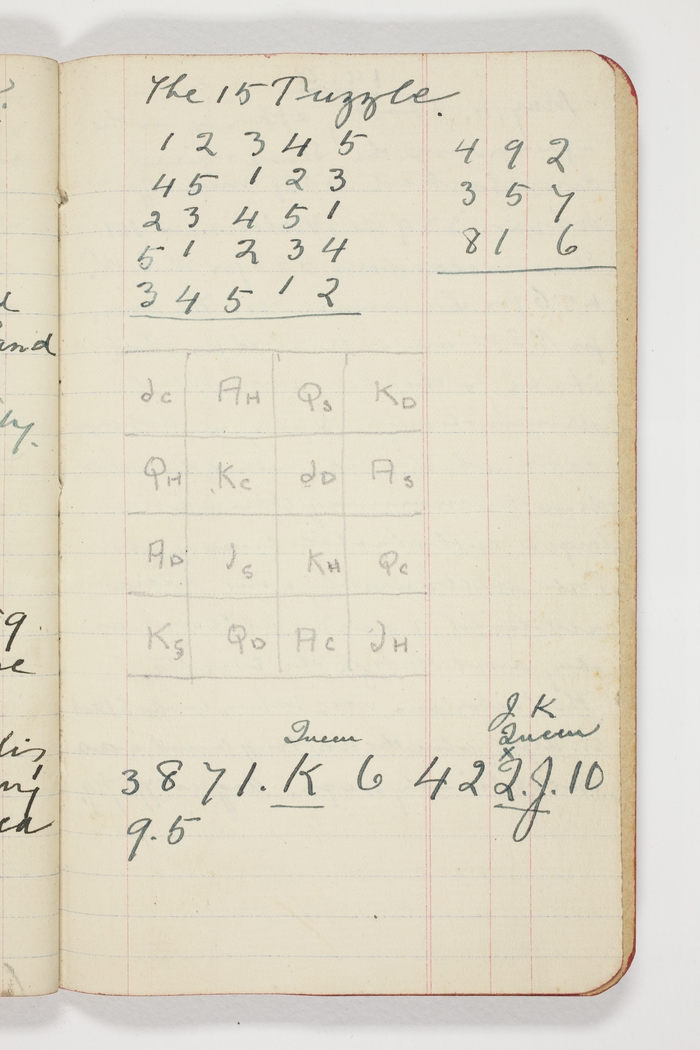 The 15 Puzzle.
1 2 3 4 5
4 5 1 2 3
2 3 4 5 1
5 1 2 3 4
3 4 5 1 2
4 9 2
3 5 7
8 1 6
Jc AH Qs KD
QH Kc JD As
AD Js KH Qc
Ks QD Ac JH
J. K
Queen Queen
x
3 8 7 1. K 6 4 2 2. J. 10
9. 5
and
ty.
9